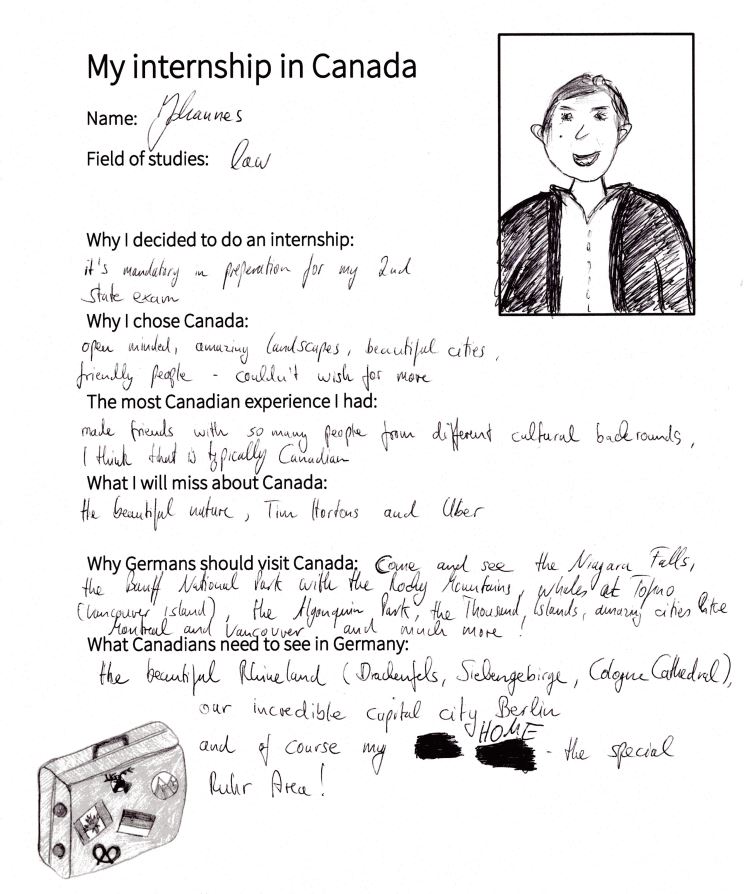 My internship in Canada
Name: Johannes
Field of studies: law
Why I decided to do an internship:
it's mandatory in preparation for my 2nd
state exam
Why I chose Canada:
open minded, amazing landscapes, beautiful cities,
friendly people - couldn't wish for more
The most Canadian experience I had:
made friends with so many people from different cultural backrounds,
I think that is typically Canadian
What I will miss about Canada:
the beautiful nature, Tim Hortons and Uber
Why Germans should visit Canada: Come and see the Niagara Falls,
the Banff National Park with the Rocky Mountains, whales at Tofino
(Vancouver island), the Algonquin Park, the Thousand Islands, amazing cities like
Montreal and Vancouver and much more!
What Canadians need to see in Germany:
the beautiful Rhineland (Drachenfels, Siebengebirge, Cologne Cathedral),
our incredible capital city Berlin
and of course my HOME - the special
Ruhr Area!